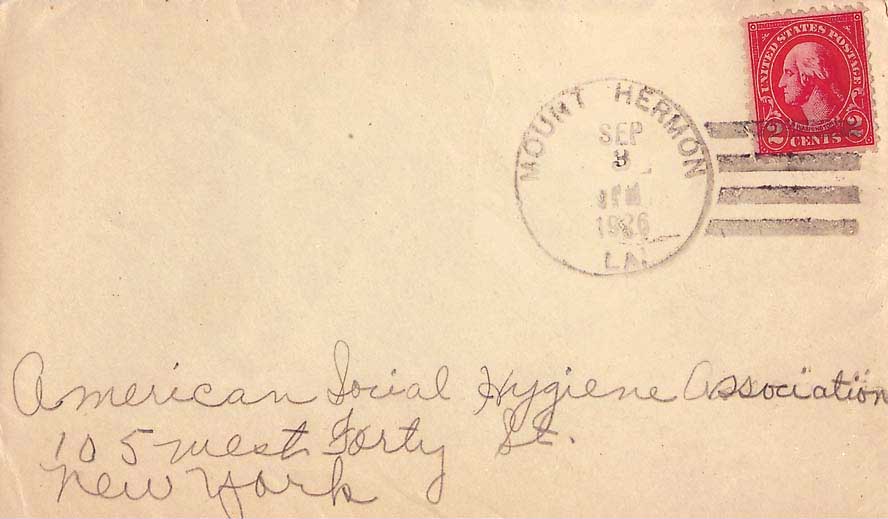 UNITED STATES POSTAGE
2 CENTS 2
MOUNT HERMON
SEP
1926
LA.
American Social Hygiene Association
105 West Forty St.
New York